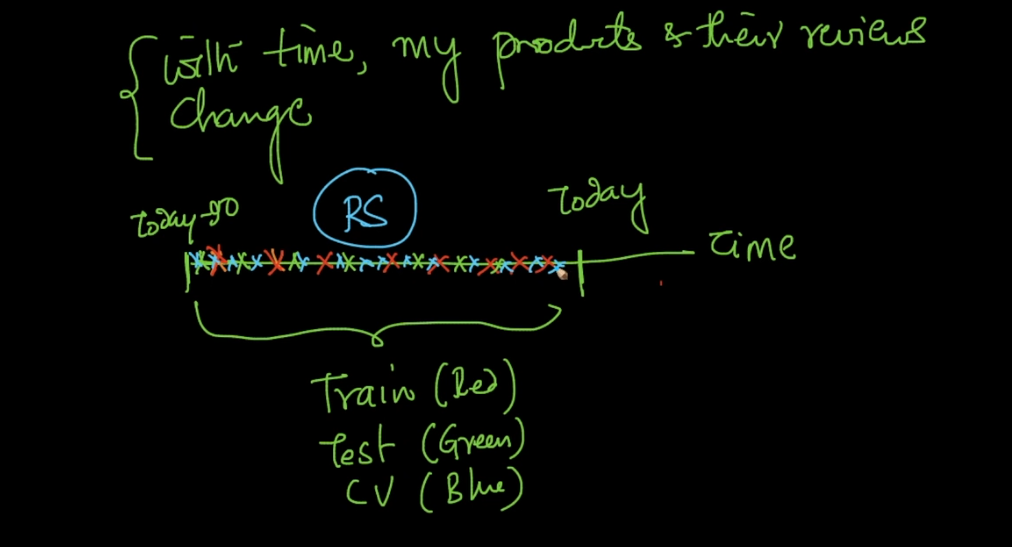 with time, my products & their reviews
change
RS
Today-90
Today
Time
Train (Red)
Test (Green)
CV (Blue)